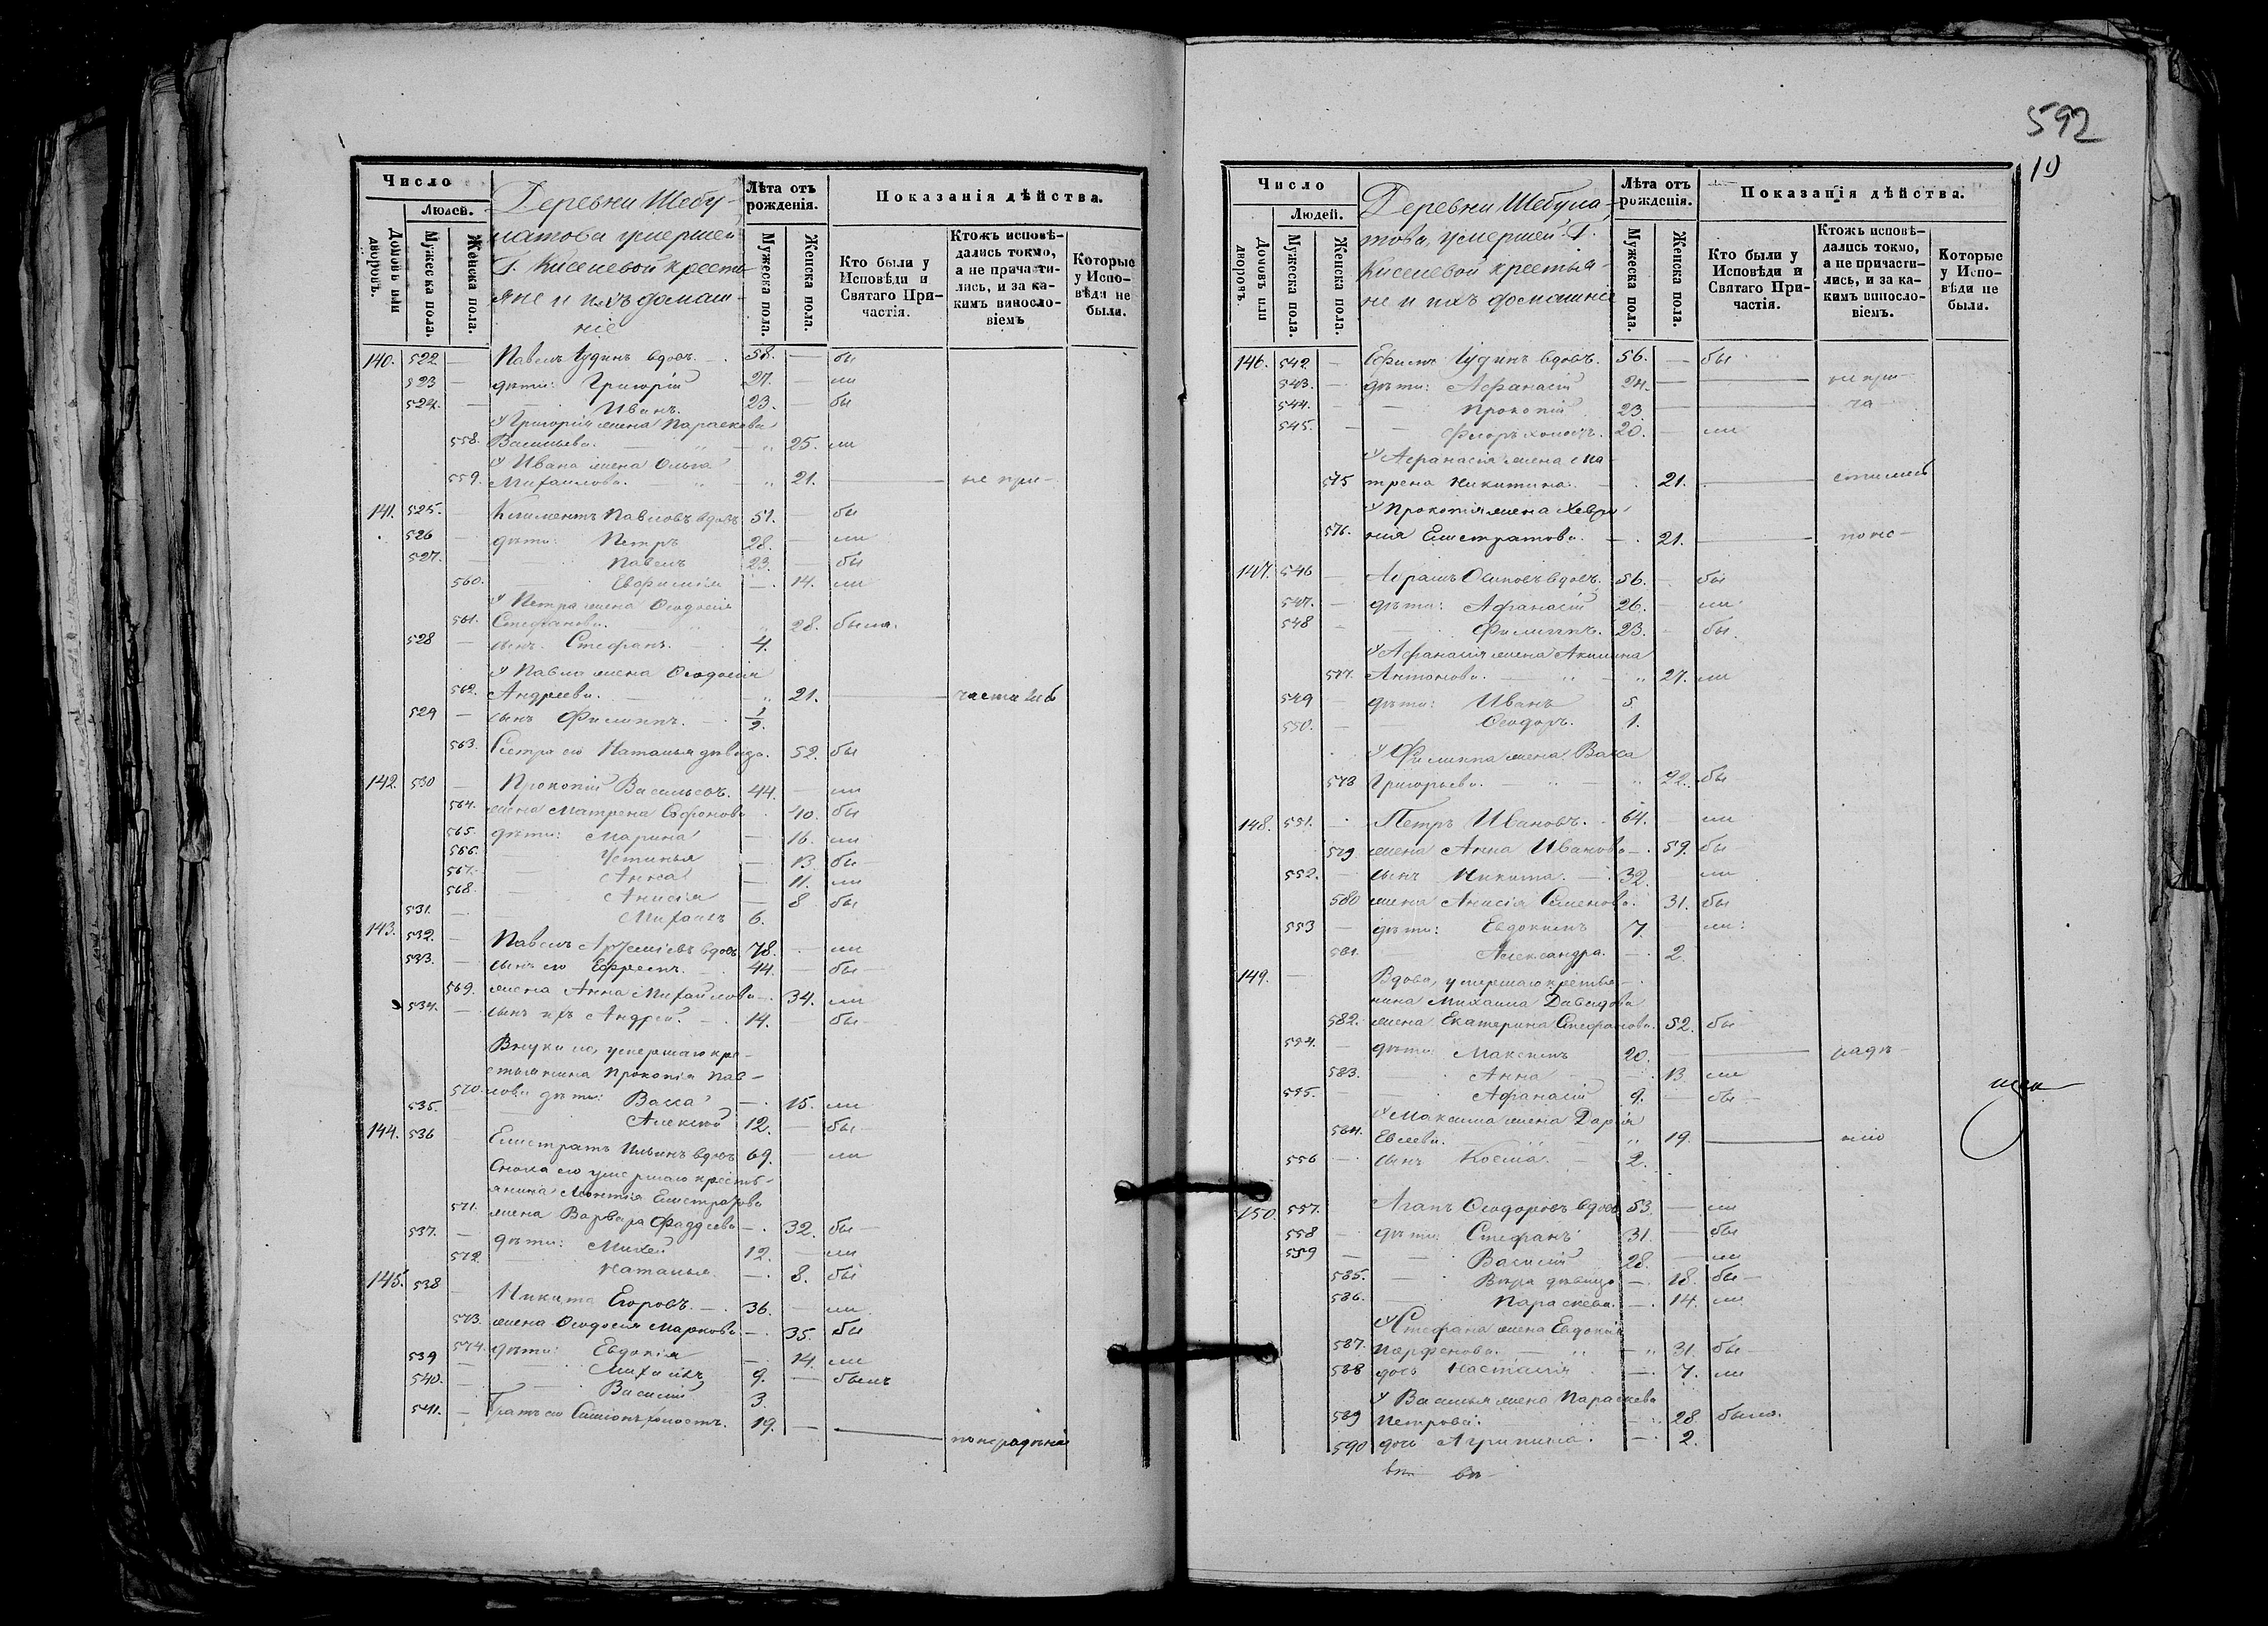 592
19
Число
Людей.
Домовъ или дворовъ.
Мужеска пола.
Женска пола.
Деревни Шебу-
латова умершей
Г. Киселевой крестья
яне и ихъ домаш-
ніе
Лѣта отъ рожденія.
Мужеска пола.
Женска пола.
Показанія дѣйства.
Кто были у Исповѣди и Святаго При-частія.
Ктожъ исповѣ-дались токмо, а не причасти-лись, и за ка-кимъ винослo-віемъ
Которые у Испо-вѣди не были.
140. 522 — Павелъ Іудинъ вдовъ. 58. — бы
523 — дѣти: Григорій 27. — ли
524. — Иванъ. 23. — бы
Григорія жена Параскева
558. Васильева. 25. ли
Ивана жена Ольга
559. Михаилова. 21. — не при-
141. 525. — Климентъ Павловъ вдовъ 51. — бы
526 — дѣти: Петръ 28. — ли
527. — Павелъ 23. — бы
560. Евфимія — 14. ли
Петра жена Ѳеодосія
561. Стефанова. 28. была.
528 — сынъ Стефанъ. 4.
Павла жена Ѳеодосія
562. Андреева. 21. — частились
529 — сынъ Филиппъ. 1/2.
563. Сестра его Наталья дѣвица. 52. бы
142. 530 — Прокопій Васильевъ. 44. — ли
564. жена Матрена Софонова 40. бы
565. дѣти: Марина — 16. ли
566. Устинья — 13 бы
567. Анна — 11. ли
568. Анисія — 8 бы
531. — Михаилъ 6.
143. 532. — Павелъ Артеміевъ вдовъ 78. — ли
533. — сынъ его Ефремъ. 44. — бы
569. жена Анна Михайлова — 34. ли
534. — сынъ ихъ Андрей. 14. — бы
Внуки его, умершаго кре-
стьянина Прокопія Пав-
570. лова дѣти: Васса — 15. ли
535. — Алексій 12. — бы
144. 536 — Елистратъ Ильинъ вдовъ 69. — ли
Сноха его умершаго кресть-
янина Леонтія Елистратова
571. жена Варвара Фаддеева — 32. бы
537. — дѣти: Михей 12. — ли
572. Наталья. — 8. бы
145. 538 — Никита Егоровъ. 36. — ли.
573. жена Ѳеодосія Маркова — 35. бы
574. дѣти: Евдокія — 14. ли
539 — Михаилъ 9. — былъ
540. — Василій 3.
541. — Братъ его Симіонъ холостъ. 19. — по нерадѣнію
Число
Людей.
Домовъ или дворовъ.
Мужеска пола.
Женска пола.
Деревни Шебула-
това, умершей Г.
Киселевой крестья-
не и ихъ домашніе
Лѣта отъ рожденія.
Мужеска пола.
Женска пола.
Показанія дѣйства.
Кто были у Исповѣди и Святаго При-частія.
Ктожъ исповѣ-дались токмо, а не причасти-лись, и за ка-кимъ винослo-віемъ.
Которые у Испо-вѣди не были.
146. 542. — Ефимъ Іудинъ вдовъ. 56. — бы
543. — дѣти: Афанасій 24. — не при-
544. — Прокопій 23. — ча
545. — Флоръ холостъ. 20. — ли
Афанасія жена Ма-
575 трена Никитина. 21. — стились
Прокопія жена Хевро
576. нія Елистратова. 21. — по не-
147. 546 — Абрамъ Осиповъ вдовъ. 56. — бы
547. — дѣти: Афанасій 26. — ли
548 — Филиппъ. 23. — бы.
Афанасія жена Акилина
577. Антонова. 27. ли
549 — дѣти: Иванъ 5
550. — Ѳеодоръ. 1.
Филиппа жена Васса
578 Григорьева. 22. бы
148. 551. — Петръ Ивановъ. 64. — ли
579 жена Анна Иванова — 59. бы
552. — сынъ Никита. 32. — ли
580 жена Анисія Семенова. 31. бы
553 — дѣти: Евдокимъ 7. — ли:
581. — Александра. — 2.
149. — Вдова, умершаго крестья-
нина Михаила Давыдова
582. жена Екатерина Стефанова. 52. бы
554. — дѣти: Максимъ 20. — радѣ-
583. — Анна 13 ли
555. — Афанасій 9. — бы
Максима жена Дарія
584. Евсеева. 19. — нію
556 — сынъ Косма. 2.
150. 557. — Агапъ Ѳеодоровъ вдовъ 53. — ли
558 — дѣти: Стефанъ 31. — бы
559 — Василій 28. — ли
585. — Вѣра дѣвица — 18. бы
586. Параскева. — 14. ли
Стефана жена Евдокія
587. Парфенова. — 31. бы
588 дочь Настасія — 7. ли
Василья жена Параскева
589 Петрова. — 28. была.
590 дочь Агрипина. — 2.